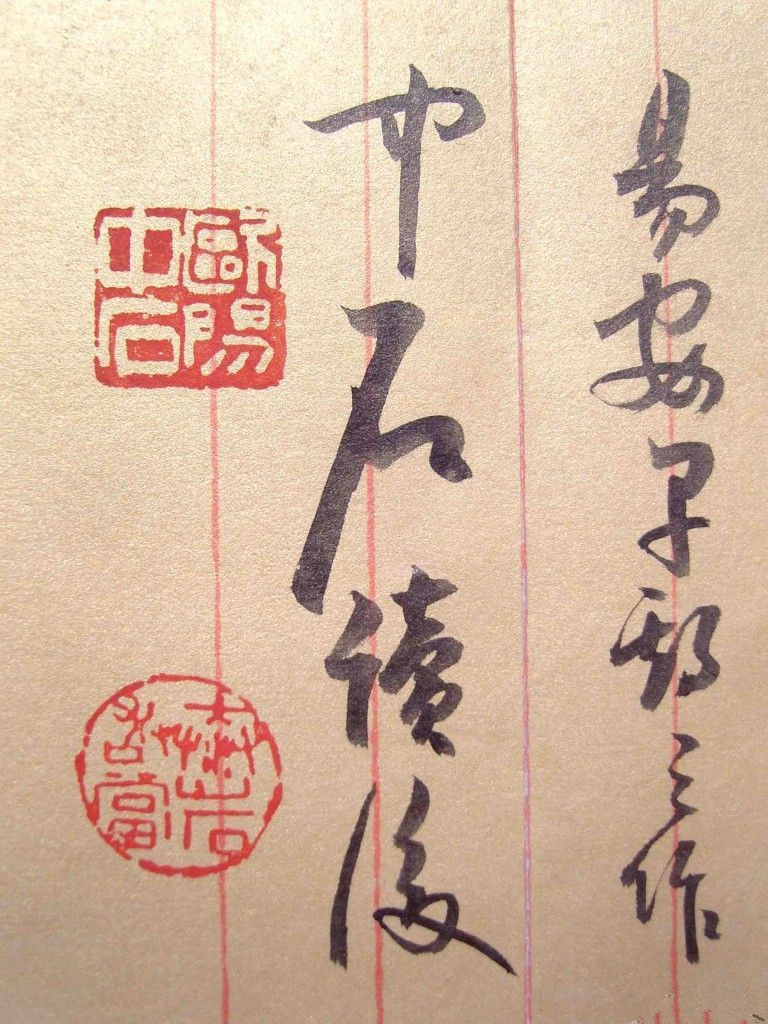 易安早期之作
中石讀後
歐陽中石